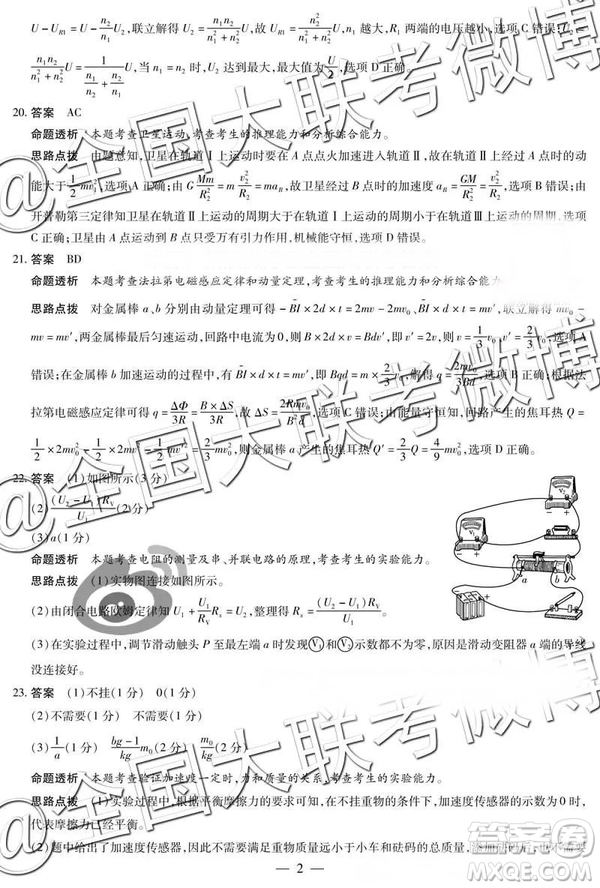 U - U_{R1} = \frac{n_1}{n_2}U_2, 联立解得 U_2 = \frac{n_1n_2}{n_1^2+n_2^2}U, 故 U_{R1} = \frac{n_2^2}{n_1^2+n_2^2}U, n_1 越大, R_1 两端的电压越小, 选项 C 错误; U_2 =
\frac{n_1n_2}{n_1^2+n_2^2}U = \frac{1}{\frac{n_1}{n_2}+\frac{n_2}{n_1}}U, 当 n_1 = n_2 时, U_2 达到最大, 最大值为 \frac{U}{2}, 选项 D 正确
20. 答案 AC
命题透析 本题考查卫星运动, 考查考生的推理能力和分析综合能力。
思路点拨 由题意知, 卫星在轨道Ⅰ上运动时要在 A 点点火加速进入轨道Ⅱ, 故在轨道Ⅱ上经过 A 点时的动
能大于 \frac{1}{2}mv_0^2, 选项 A 正确; 由 G\frac{Mm}{R_2^2} = m\frac{v^2}{R_2} = ma_B, 故卫星经过 B 点时的加速度 a_B = \frac{GM}{R_2^2} = \frac{v^2}{R_2}, 选项 B 错误; 由
开普勒第三定律知卫星在轨道Ⅱ上运动的周期大于在轨道Ⅰ上运动的周期而小于在轨道Ⅲ上运动的周期, 选项
C 正确; 卫星由 A 运动到 B 点只受万有引力作用, 机械能守恒, 选项 D 错误。
21. 答案 BD
命题透析 本题考查法拉第电磁感应定律和动量定理, 考查考生的推理能力和分析综合能力
思路点拨 对金属棒 a、b 分别由动量定理可得 -BI × 2d × t = 2mv - 2mv_0, BI × d × t = mv', 联立解得 2mv_0
- 2mv = 2mv', 两金属棒最后匀速运动, 回路中电流为 0, B × 2d × v = Bdv', 即 v' = 2v, 则 v = \frac{1}{3}v_0, v' = \frac{2}{3}v_0, 选项 A
错误; 在金属棒 b 加速运动的过程中, 有 BI × d × t = mv', 即 Bqd = m × \frac{2}{3}v_0, 解得 q = \frac{2mv_0}{3Bd}, 选项 B 正确; 根据法
拉第电磁感应定律可得 q = \frac{ΔΦ}{3R} = \frac{B × ΔS}{3R}, 故 ΔS = \frac{2Rmv_0}{B^2d}, 选项 C 错误; 由能量守恒知, 回路产生的焦耳热 Q =
\frac{1}{2} × 2mv_0^2 - \frac{1}{2} × 2mv^2 - \frac{1}{2}mv'^2 = \frac{2}{3}mv_0^2, 金属棒 a 产生的焦耳热 Q' = \frac{2}{3}Q = \frac{4}{9}mv_0^2, 选项 D 正确。
22. 答案 (1)如图所示(3 分)
(2)\frac{(U_2-U_1)R_V}{U_1}(2 分)
(3)a(1 分)
命题透析 本题考查电阻的测量及串、并联电路的原理, 考查考生的实验能力。
思路点拨 (1)实物图连接如图所示。
(2)由闭合电路欧姆定律知 U_1 + \frac{U_1}{R_V}R_x = U_2, 整理得 R_x = \frac{(U_2-U_1)R_V}{U_1}。
(3)在实验过程中, 调节滑动触头 P 至最左端 a 时发现 V_1 和 V_2 示数都不为 0, 原因是滑动变阻器 a 端的导线
没连接好。
a b
23. 答案 (1)不挂(1 分) 0(1 分)
(2)不需要(1 分) 不需要(1 分)
(3)\frac{1}{a}(1 分) \frac{bg-1}{kg}m_0(2 分) \frac{m_0}{kg}(2 分)
命题透析 本题考查验证加速度一定时, 力和质量的关系, 考查考生的实验能力。
思路点拨 (1)实验过程中, 根据平衡摩擦力的要求可知, 在不挂重物的条件下, 加速度传感器的示数为 0 时,
代表摩擦力已经平衡。
(2)题中给出了加速度传感器, 因此不需要满足重物质量远小于小车和砝码的总质量,
— 2 —
@全国大联考微博
@全国大联考微博
答案圈
MXQE.COM